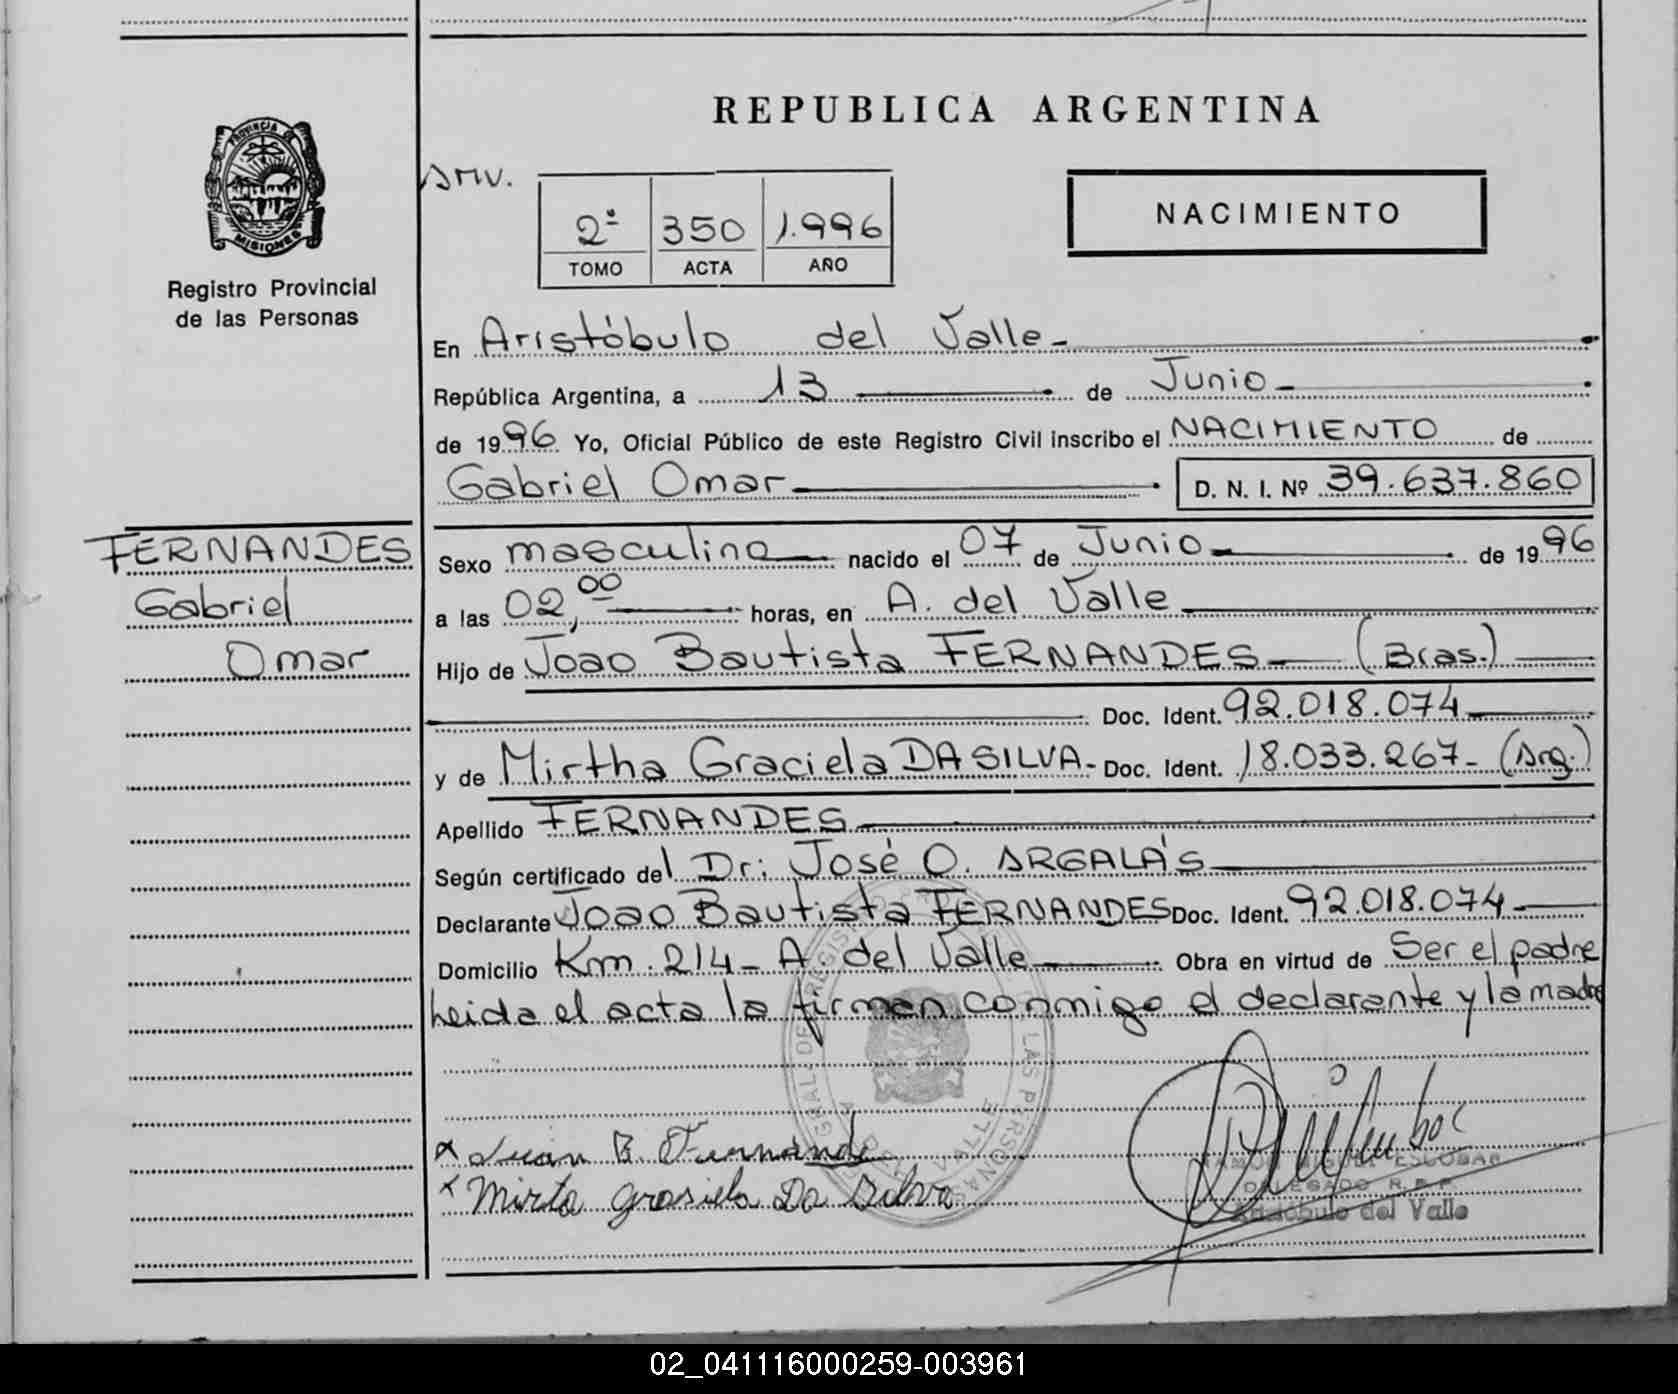 PROVINCIA DE
MISIONES
Registro Provincial
de las Personas
FERNANDES
Gabriel
Omar
REPUBLICA ARGENTINA
2ª 350 1.996
TOMO ACTA AÑO
NACIMIENTO
En Aristóbulo del Valle-
República Argentina, a 13 de Junio-
de 1996 Yo, Oficial Público de este Registro Civil inscribo el NACIMIENTO de
Gabriel Omar D. N. I. Nº 39.637.860
Sexo masculino nacido el 07 de Junio- de 1996
a las 02,00 horas, en A. del Valle
Hijo de Joao Bautista FERNANDES- (Bras.)
Doc. Ident. 92.018.074-
y de Mirtha Graciela DA SILVA- Doc. Ident. 18.033.267- (Arg.)
Apellido FERNANDES
Según certificado del Dr: José O. ARGALA'S
Declarante Joao Bautista FERNANDES Doc. Ident. 92.018.074-
Domicilio Km. 214- A. del Valle Obra en virtud de Ser el padre
Leida el acta la firman conmigo el declarante y la madre
x Juan B. Fernande
x Mirta Grasiela Da Silva
RAMON MIGUEL ESCOBAR
DELEGADO R.P.P.
Aristóbulo del Valle
02_041116000259-003961